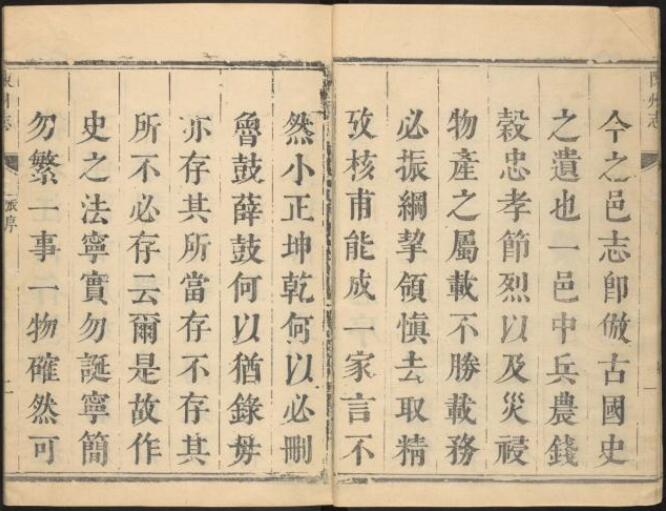 陳州志
今之邑志卽倣古國史
之遺也一邑中兵農錢
穀忠孝節烈以及災祲
物產之屬載不勝載務
必振綱挈領愼去取精
攷核甫能成一家言不
然小正坤乾何以必刪
魯鼓薛鼓何以猶錄毋
亦存其所當存不存其
所不必存云爾是故作
史之法寧實勿誕寧簡
勿繁一事一物確然可
陳州志
序